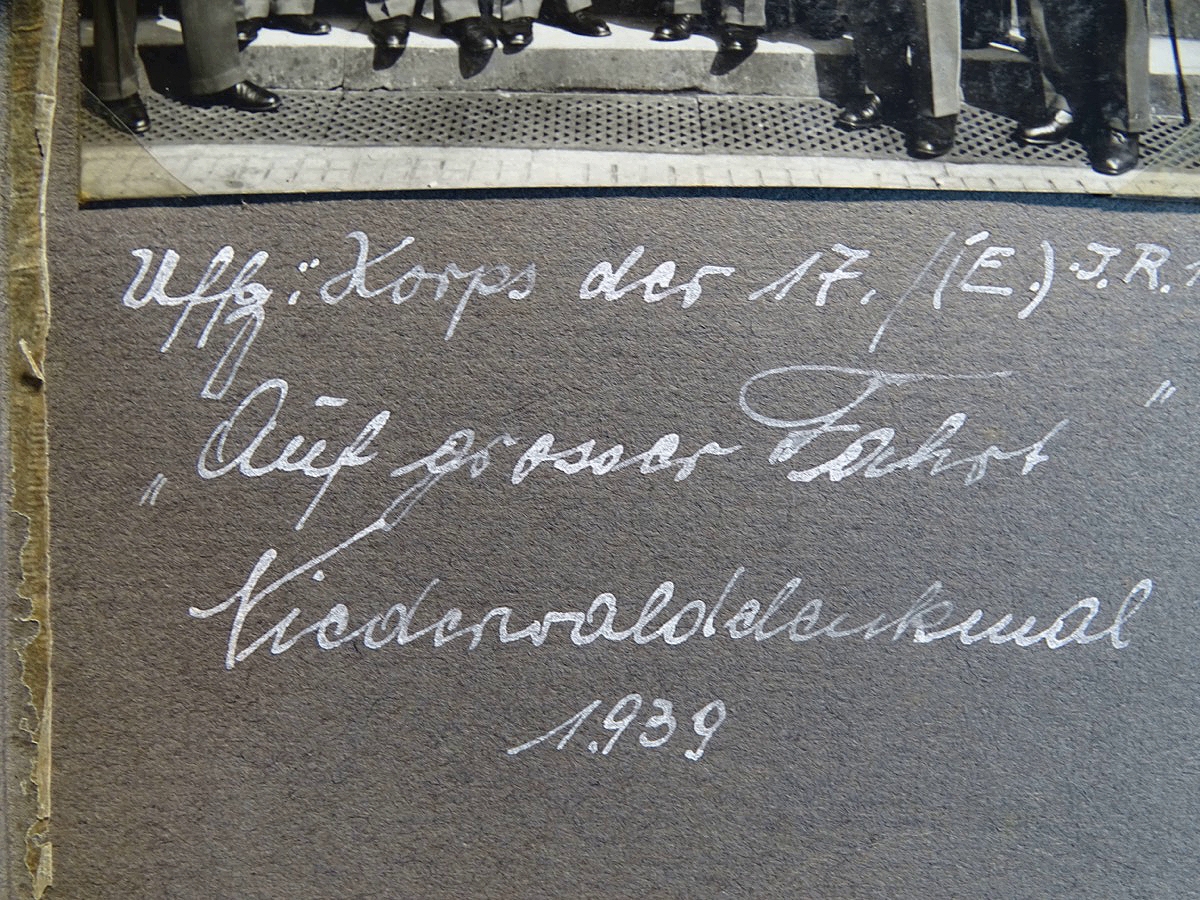 Uffz.: Korps der 17. /(E.) J.R. 1
„Auf grosser Fahrt"
Niederwalddenkmal
1.939